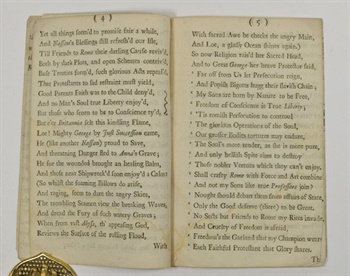 ( 4 )
Yet all things ſeem'd to promiſe fair a while,
And Naſſau's Bleſſings ſtill refreſh'd our Iſle,
Till Friends to Rome their darling Cauſe reviv'd,
Both by dark Plots, and open Schemes contriv'd,
Baſe Treaſon form'd, ſuch glorious Acts repeal'd,
That Proteſtants to ſad reſtraint muſt yield,
Good Parents Faith was to the Child deny'd,
And no Man's Soul true Liberty enjoy'd,
But thoſe who ſeem to be Conſcience ty'd;
But e're Britannia felt this kindling Flame,
Lo! Mighty George by Juſt Succeſſion came,
He (like another Naſſau) proud to Save,
And threatning Danger fled to Anna's Grave;
He for the wounded brought an healing Balm,
And thoſe near Shipwreck'd ſoon enjoy'd a Calm:
(So whilſt the foaming Billows do ariſe,
And raging, ſeem to dare the angry Skies,
The trembling Seamen view the breaking Waves,
And dread the Fury of ſuch watery Graves;
When from vaſt Abyſs, th' appeaſing God,
Reviews the Surface of the riſing Flood,
With
( 5 )
With ſacred Awe he checks the angry Main,
And Lo!, a glaſſy Ocean ſhines again)
So now Religion rais'd her Sacred Head,
And to Great George her better Protector ſaid,
' Far off from Us let Perſecution reign,
' And Popiſh Bigots hugg their ſlaviſh Chain;
' My Sons are born by Nature to be Free,
' Freedom of Conſcience is True Liberty;
' 'Tis ruinous Perſecution to controul
' The glorious Operations of the Soul,
' Our groſſer Bodies tortures may endure,
' The Soul's more tender, as ſhe is more pure,
' And only briſtle Spite tries to deſtroy
' Thoſe nobler Vertues which they can't enjoy.
' Shall crafty Rome with Force and Art combine
' And not my Sons like true Profeſſors join?
' Nought ſhould debarr them from affairs of State,
' Only the Good deſerve (there) to be Great.
' No Sects but Friends to Rome my Rites invade,
' And Cruelty of Freedom is afraid,
' Freedom's the Garland that my Champion wears
' Each Faithful Proteſtant that Glory ſhares.
Th